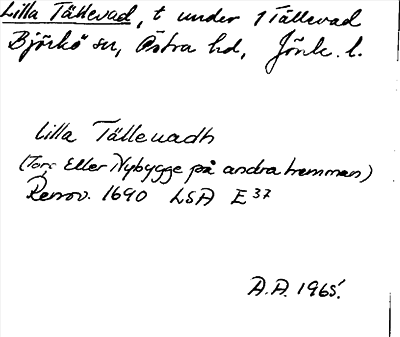 Lilla Tällevad, t under 1 Tällevad
Björkö sn, Östra hd, Jönk. l.
Lilla Tällevadh
(Torp Eller Nybygge på andra hemman)
Renov. 1690 LSA E 37
A.A. 1965.